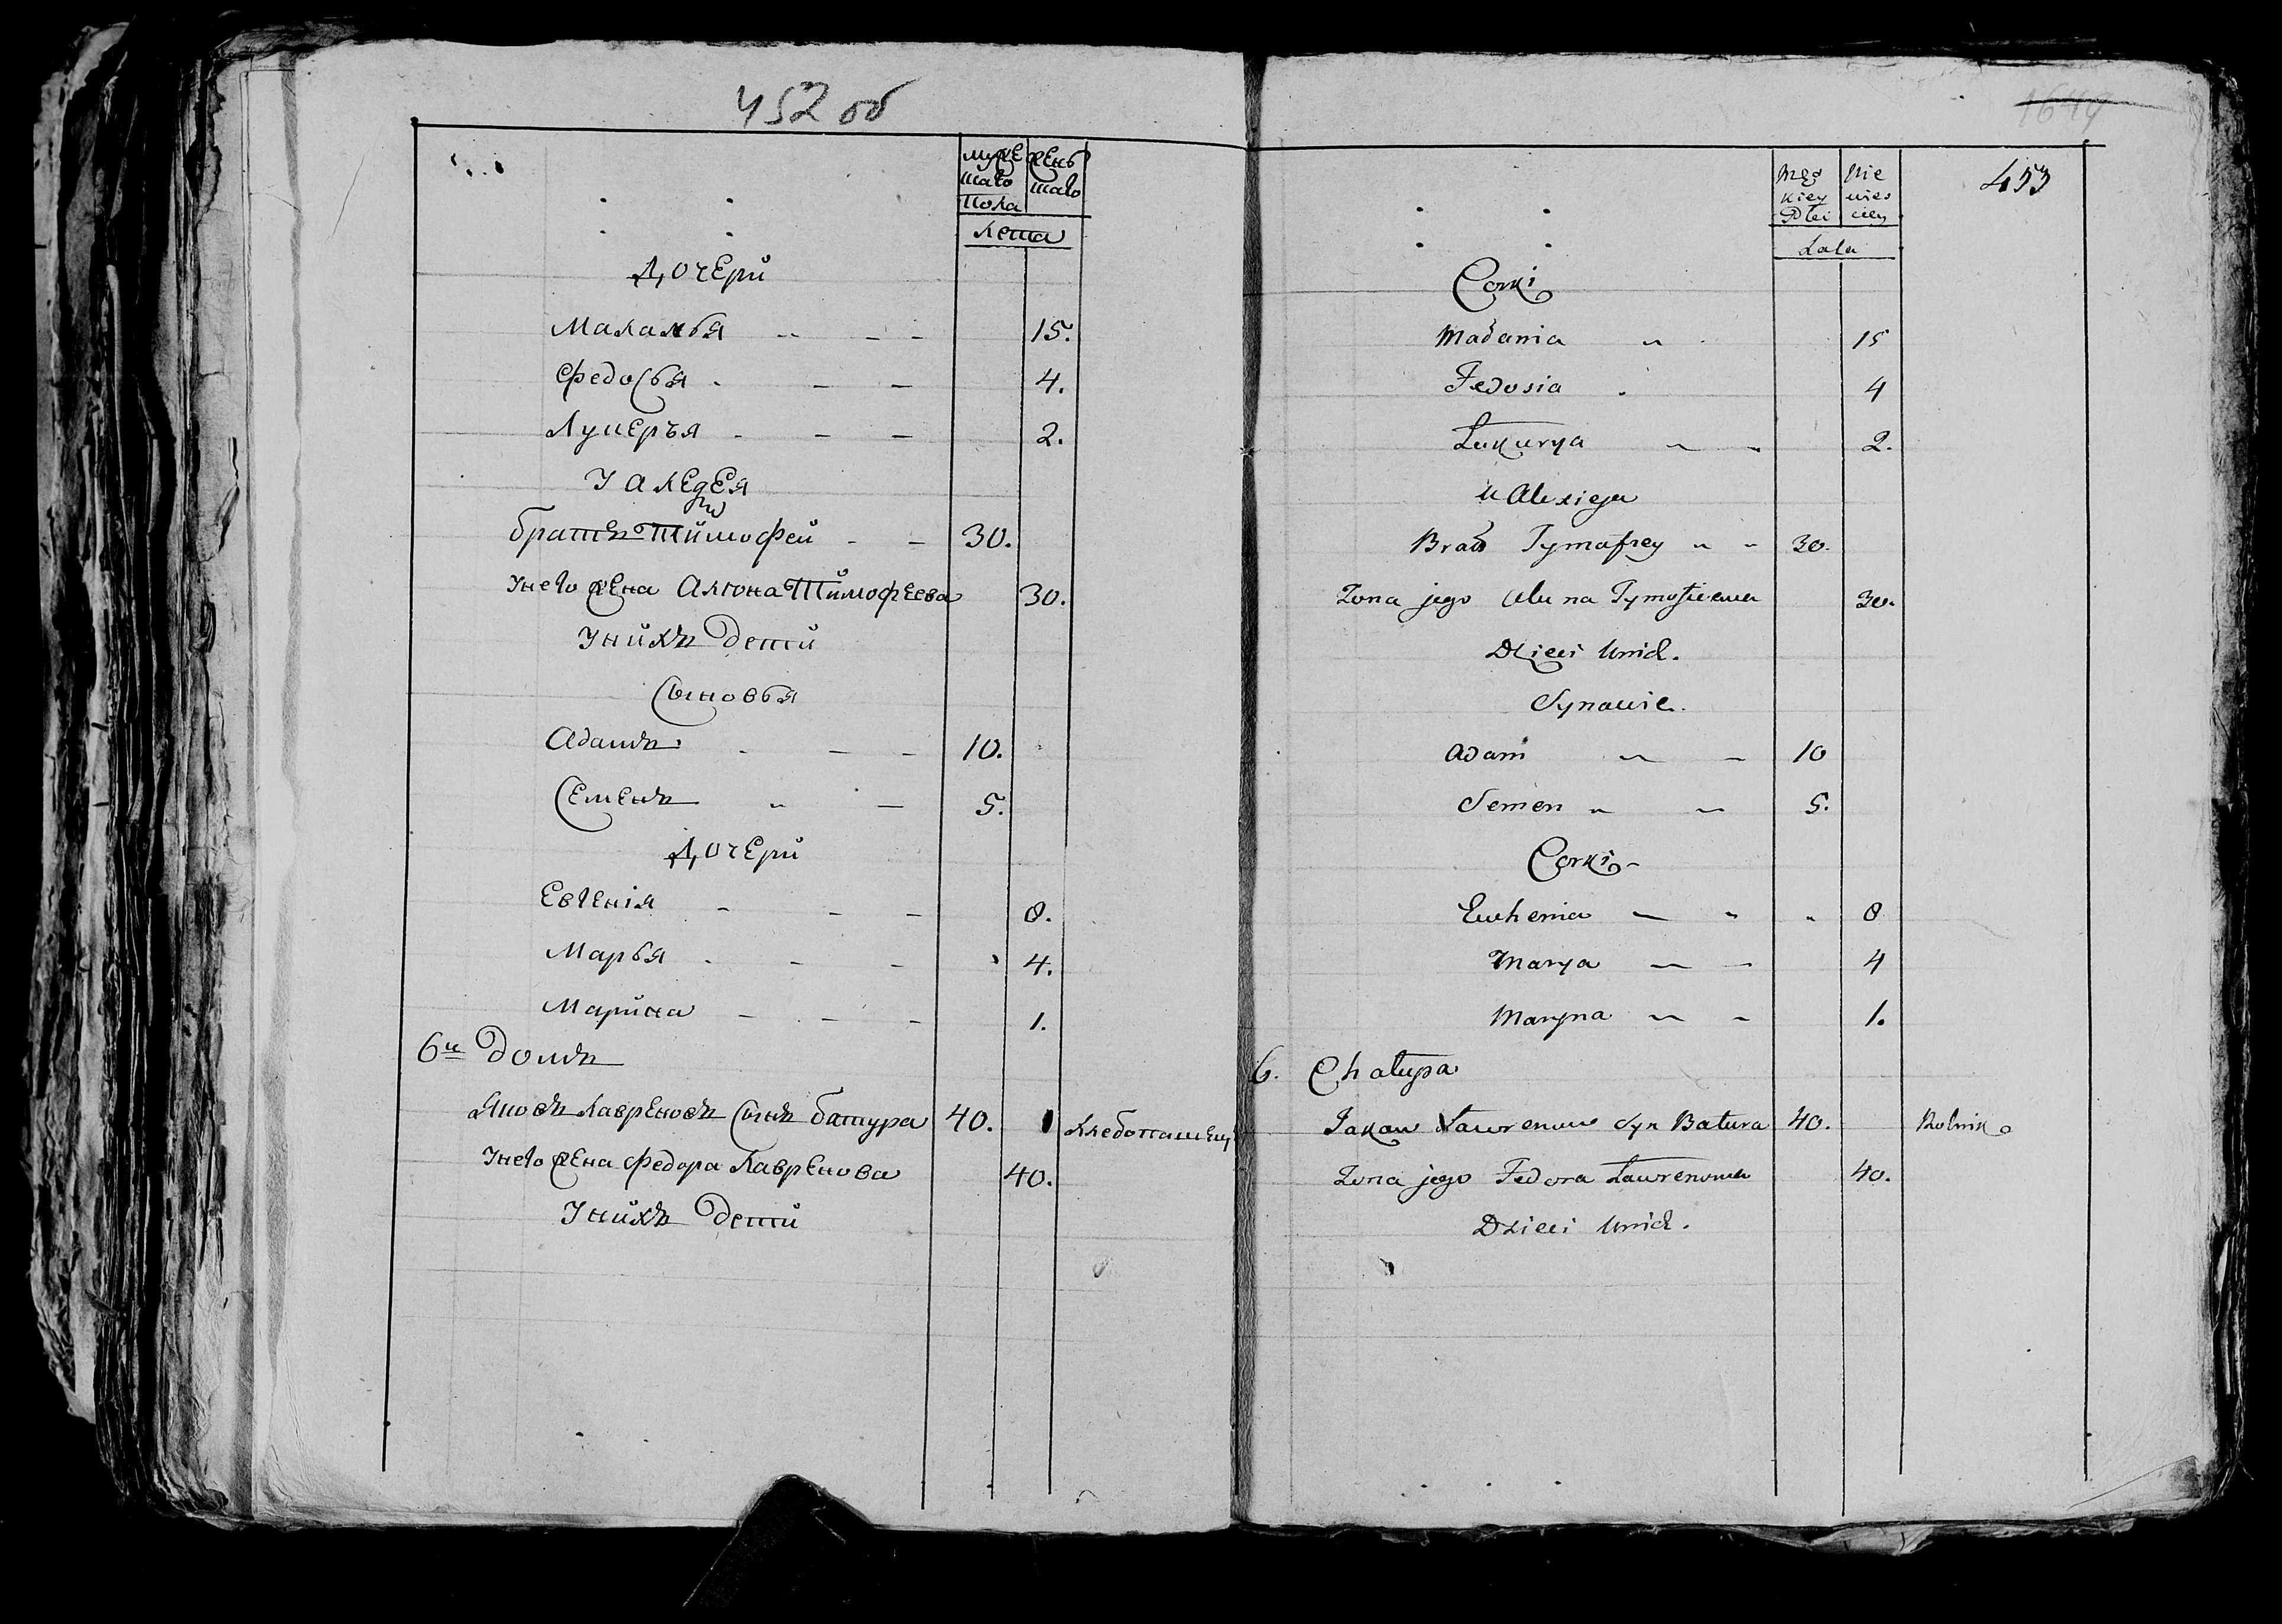 452 об
муже женъ
скаго скаго
пола
лета
Дочери
Маланья 15.
Федосья 4.
Лукерья 2.
У Алексея
братъ Тимофей 30.
У него жена Алюна Тимофеева 30.
У нихъ дети
Сыновья
Адамъ 10.
Семенъ 5.
Дочери
Евгенія 8.
Марья 4.
Марина 1.
6й домъ
Яковъ Лавреновъ сынъ батура 40. хлебопашец
У него жена Федора Лавренова 40.
У нихъ дети
1649
453
Męs Nie
kiey wies
Płci ciey
Lata
Corki
Małania 15
Fedosia 4
Łukierya 2.
u Alexieja
Brat Tymofiey 30.
Zona jego Alena Tymofiejewa 30.
Dzieci Unich.
Synowie.
Adam 10
Semen 5.
Corki
Euhenia 8
Marya 4
Maryna 1.
6. Chałupa
Jakow Ławrenow Syn Batura 40. Rolnik
Zona jego Fedora Ławrenowa 40.
Dzieci Unich.